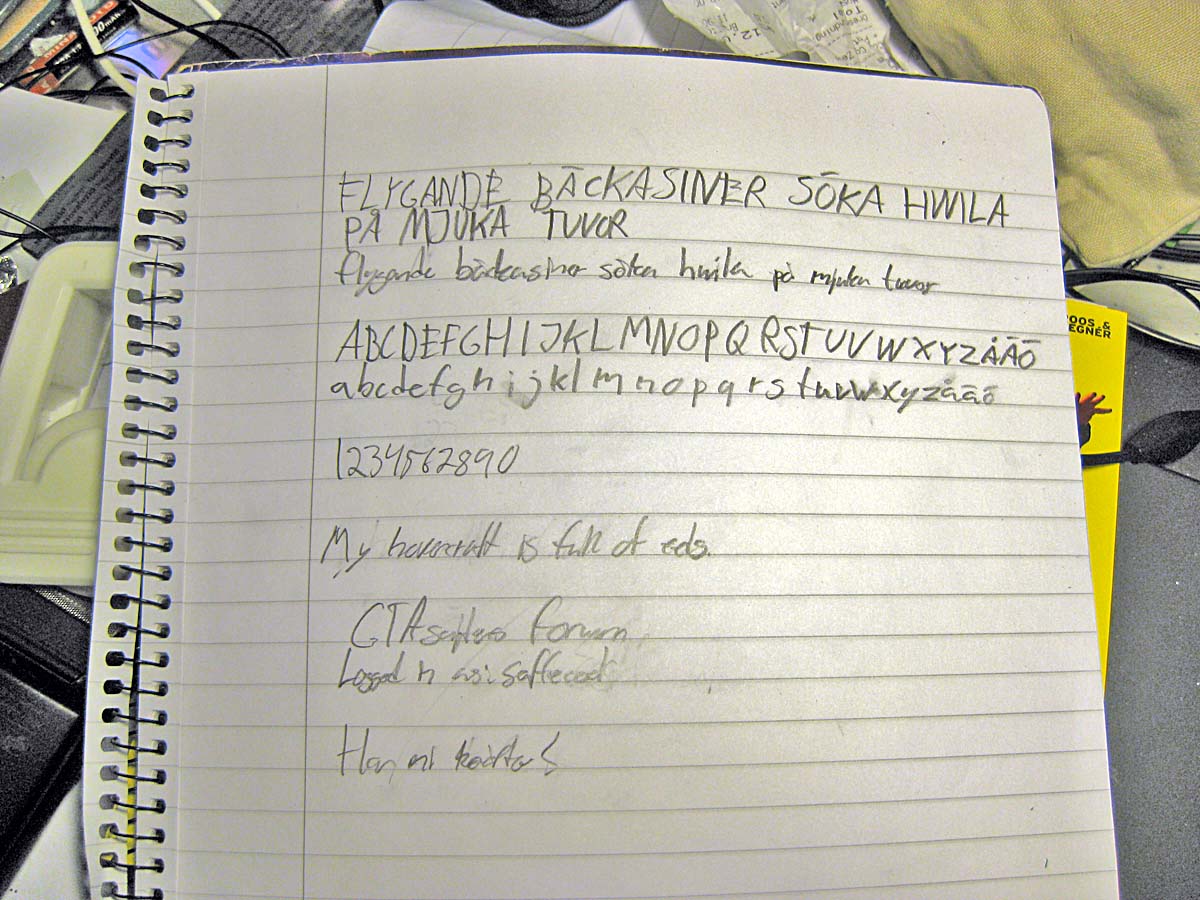 12.
Tot
FLYGANDE BÄCKASINER SÖKA HWILA
PÅ MJUKA TUVOR
flygande bäckasiner söka hwila på mjuka tuvor
ABCDEFGHIJKLMNOPQRSTUVWXYZÅÄÖ
abcdefghijklmnopqrstuvwxyzåäö
1234567890
My hovercraft is full of eels.
GTAsajten forum
Logged in as: saffeco
POOS &
EGNÉR